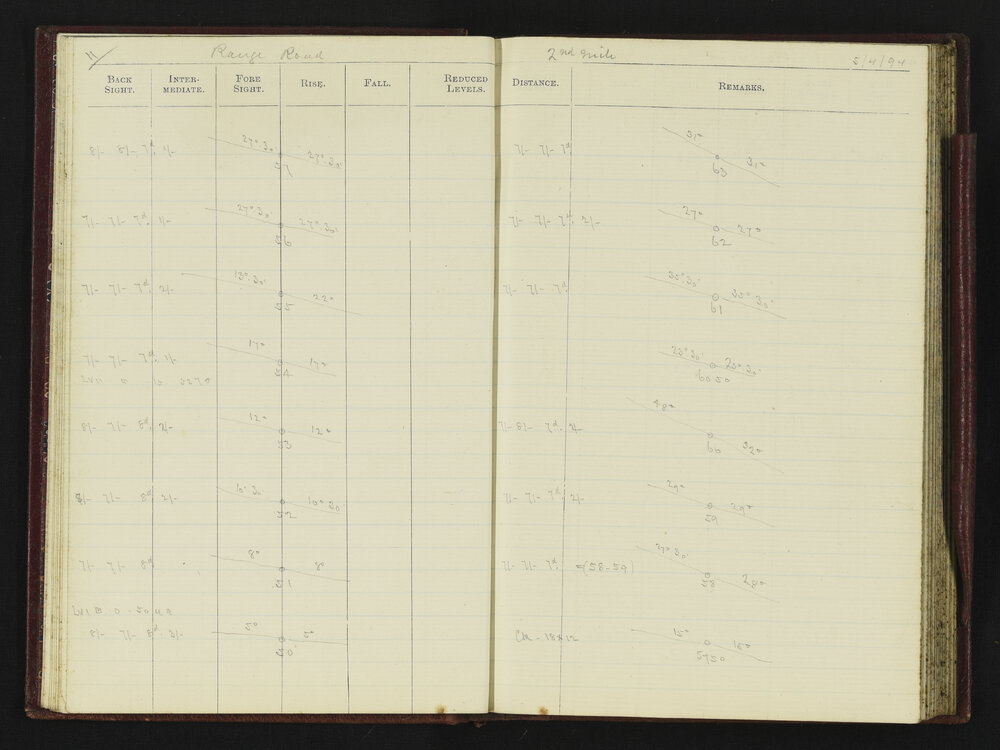 Range Road
2nd mile
5/4/94
BACK SIGHT. INTER-MEDIATE. FORE SIGHT. RISE. FALL. REDUCED LEVELS.
DISTANCE. REMARKS.
8/- 8/- 7d. 1/- 27° 30' 27° 30'
57
7/- 7/- 7d. 1/- 27° 30' 27° 30'
56
7/- 7/- 7d. 2/- 13° 30' 22°
55
7/- 7/- 7d. 1/- 17° 17°
54
8/- 7/- 8d. 2/- 12° 12°
53
8/- 7/- 8d 2/- 10° 30 10° 30
52
7/- 7/- 8d 8° 8°
51
8/- 7/- 8d. 2/- 5° 5°
50
7/- 7/- 7d. 31° 31°
63
7/- 7/- 7d. 2/- 27° 27°
62
7/- 7/- 7d. 35° 30' 35° 30'
61
25° 30' 25° 30'
6050
7/- 8/- 7d. 48° 32°
60
7/- 7/- 7d. 2/- 29° 29°
59
7/- 7/- 7d. =(58-59) 27° 30' 28°
58
18x12 15° 15°
5750